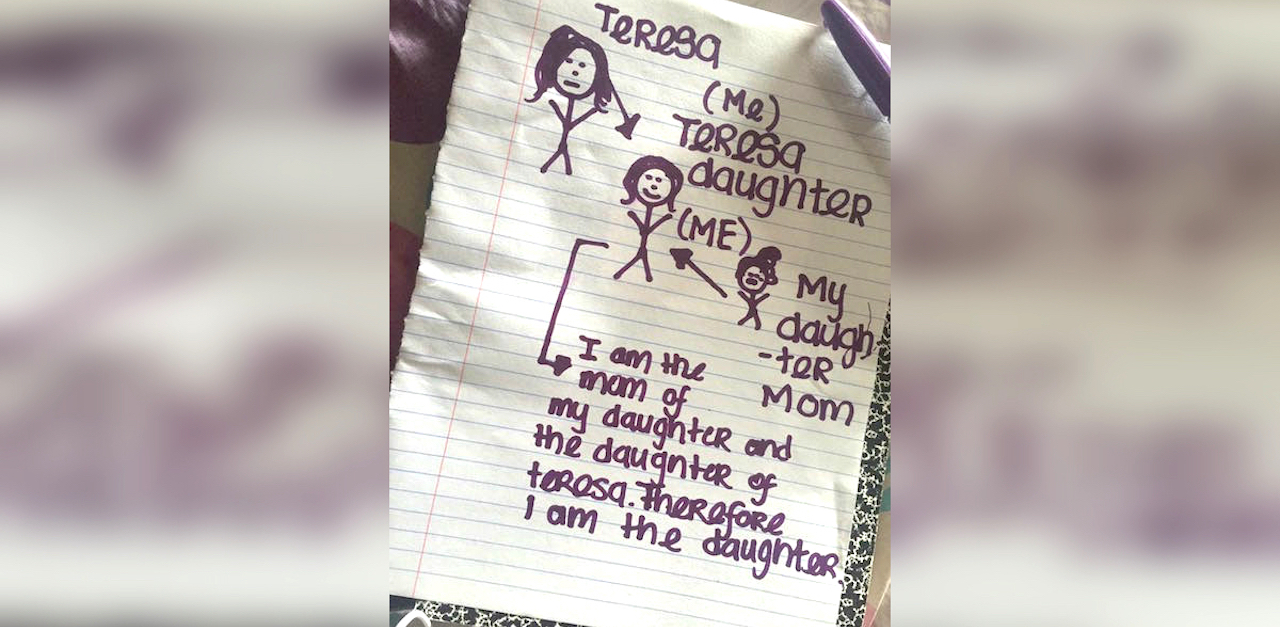 TeReSa
(Me)
TeReSa
daughteR
(ME)
My
daugh
-teR
Mom
I am the
mom of
my daughteR and
the daughteR of
teresa. TheRefoRe
I am the daughteR.